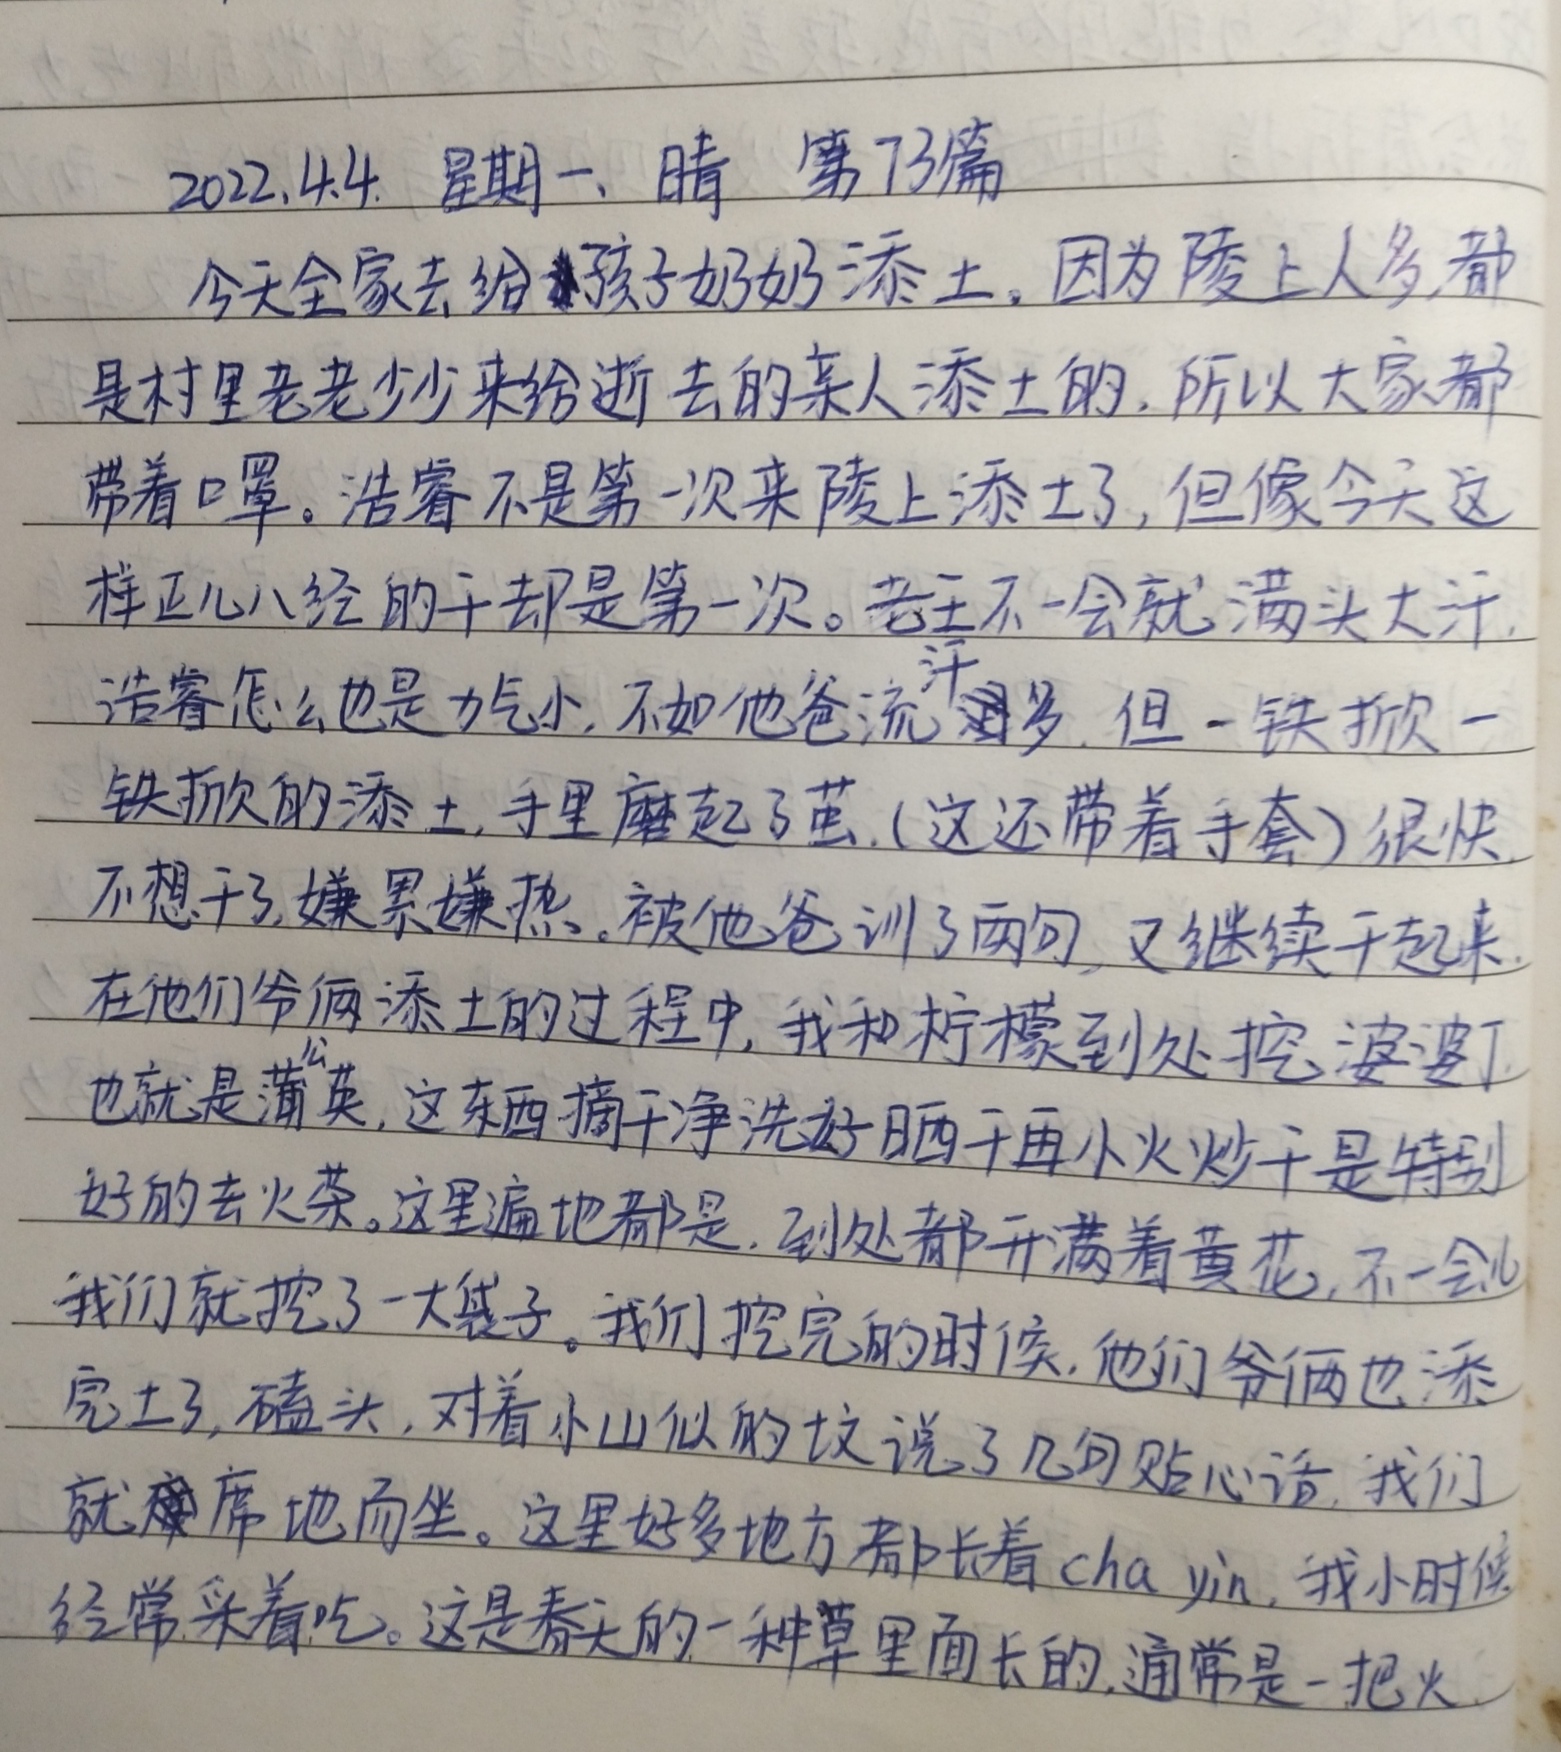 2022.4.4. 星期一、晴 第73篇
今天全家去给孩子奶奶添土。因为陵上人多,都
是村里老老少少来给逝去的亲人添土的,所以大家都
带着口罩。浩睿不是第一次来陵上添土了,但像今天这
样正儿八经的干却是第一次。老王不一会就满头大汗,
浩睿怎么也是力气小,不如他爸流汗多,但一铁掀一
铁掀的添土,手里磨起了茧,(这还带着手套)很快
不想干了,嫌累嫌热。被他爸训了两句,又继续干起来.
在他们爷俩添土的过程中,我和柠檬到处挖婆婆丁
也就是蒲公英,这东西摘干净洗好晒干再小火炒干是特别
好的去火茶。这里遍地都是,到处都开满着黄花,不一会儿
我们就挖了一大袋子。我们挖完的时候,他们爷俩也添
完土了,磕头,对着小山似的坟说了几句贴心话,我们
就席地而坐。这里好多地方都长着cha yin,我小时候
经常采着吃。这是春天的一种草里面长的,通常是一把火